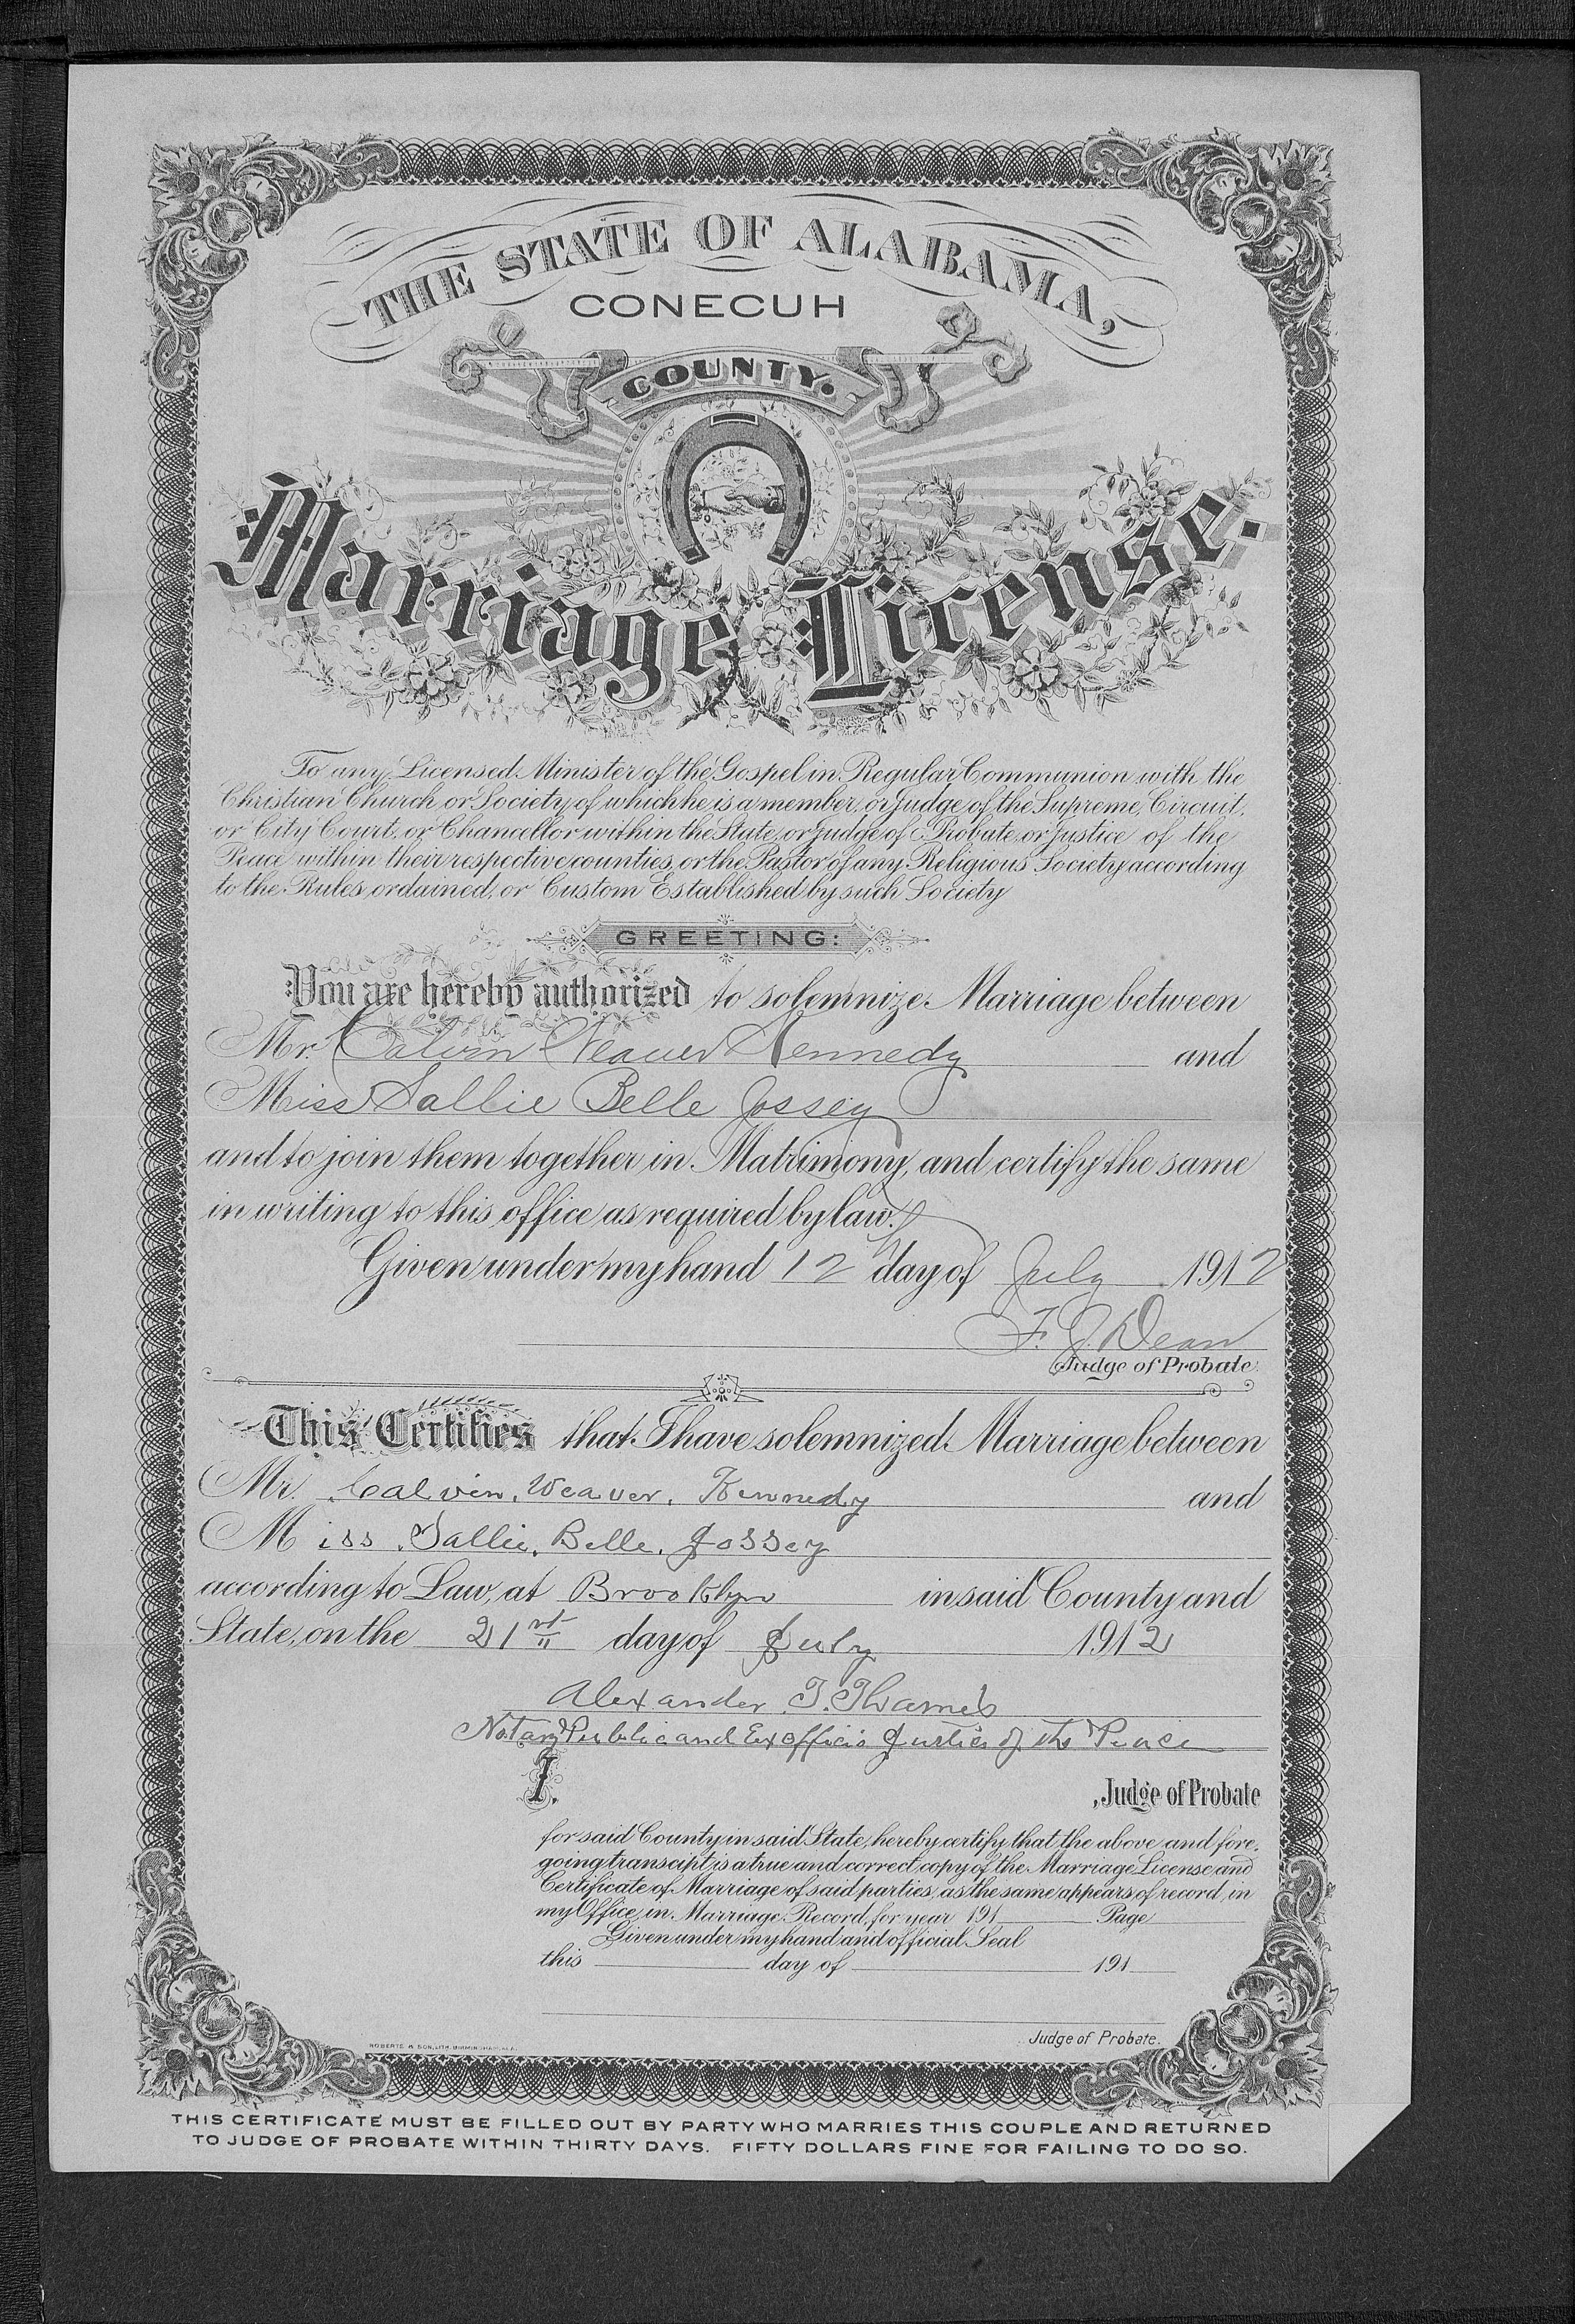 THE STATE OF ALABAMA,
CONECUH
COUNTY.
Marriage License.
To any Licensed Minister of the Gospel in Regular Communion with the
Christian Church or Society of which he is a member, or Judge of the Supreme, Circuit,
or City Court, or Chancellor within the State, or Judge of Probate, or Justice of the
Peace within their respective counties, or the Pastor of any Religious Society according
to the Rules ordained, or Custom Established by such Society
GREETING:
You are hereby authorized to solemnize Marriage between
Mr. Calvin Weaver Kennedy and
Miss Sallie Belle Jossey
and to join them together in Matrimony, and certify the same
in writing to this office as required by law.
Given under my hand 12th day of July 1912
F. J. Dean
Judge of Probate.
This Certifies that I have solemnized Marriage between
Mr. Calvin. Weaver. Kennedy and
Miss. Sallie. Belle. Jossey
according to Law, at Brooklyn in said County and
State, on the 21st day of July 1912
Alexander T. Thames
Notary Public and Ex officio Justice of the Peace
I. , Judge of Probate
for said County in said State, hereby certify that the above and fore-
going transcript is a true and correct copy of the Marriage License and
Certificate of Marriage of said parties, as the same appears of record, in
my Office, in Marriage Record, for year 191 Page
Given under my hand and official Seal
this day of 191
Judge of Probate.
ROBERTS & SON, LITH. BIRMINGHAM, ALA.
THIS CERTIFICATE MUST BE FILLED OUT BY PARTY WHO MARRIES THIS COUPLE AND RETURNED
TO JUDGE OF PROBATE WITHIN THIRTY DAYS. FIFTY DOLLARS FINE FOR FAILING TO DO SO.